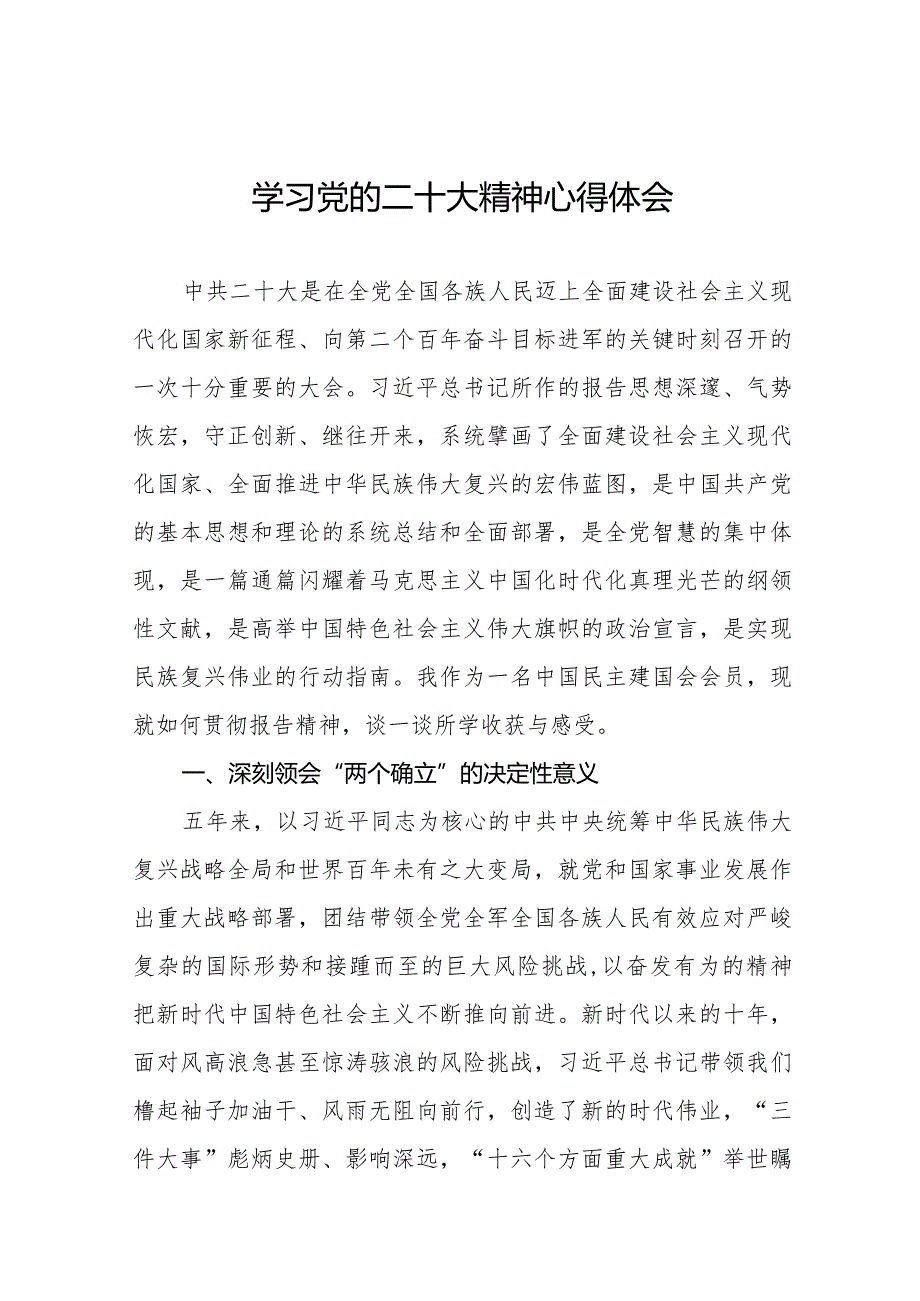 学习党的二十大精神心得体会
中共二十大是在全党全国各族人民迈上全面建设社会主义现
代化国家新征程、向第二个百年奋斗目标进军的关键时刻召开的
一次十分重要的大会。习近平总书记所作的报告思想深邃、气势
恢宏，守正创新、继往开来，系统擘画了全面建设社会主义现代
化国家、全面推进中华民族伟大复兴的宏伟蓝图，是中国共产党
的基本思想和理论的系统总结和全面部署，是全党智慧的集中体
现，是一篇通篇闪耀着马克思主义中国化时代化真理光芒的纲领
性文献，是高举中国特色社会主义伟大旗帜的政治宣言，是实现
民族复兴伟业的行动指南。我作为一名中国民主建国会会员，现
就如何贯彻报告精神，谈一谈所学收获与感受。
一、深刻领会“两个确立”的决定性意义
五年来，以习近平同志为核心的中共中央统筹中华民族伟大
复兴战略全局和世界百年未有之大变局，就党和国家事业发展作
出重大战略部署，团结带领全党全军全国各族人民有效应对严峻
复杂的国际形势和接踵而至的巨大风险挑战,以奋发有为的精神
把新时代中国特色社会主义不断推向前进。新时代以来的十年，
面对风高浪急甚至惊涛骇浪的风险挑战，习近平总书记带领我们
橹起袖子加油干、风雨无阻向前行，创造了新的时代伟业，“三
件大事”彪炳史册、影响深远，“十六个方面重大成就”举世瞩